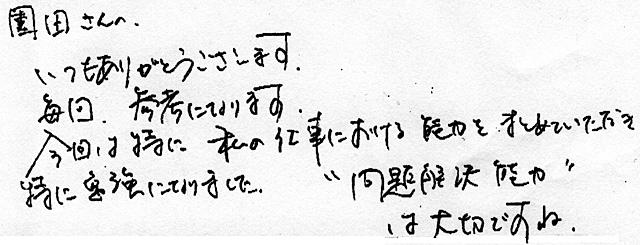 園田さんへ.
いつもありがとうございます.
毎回、参考になります.
今回は特に 私の仕事における 能力を まとめていただき
特に勉強になりました.
"問題解決能力"
は大切ですね.